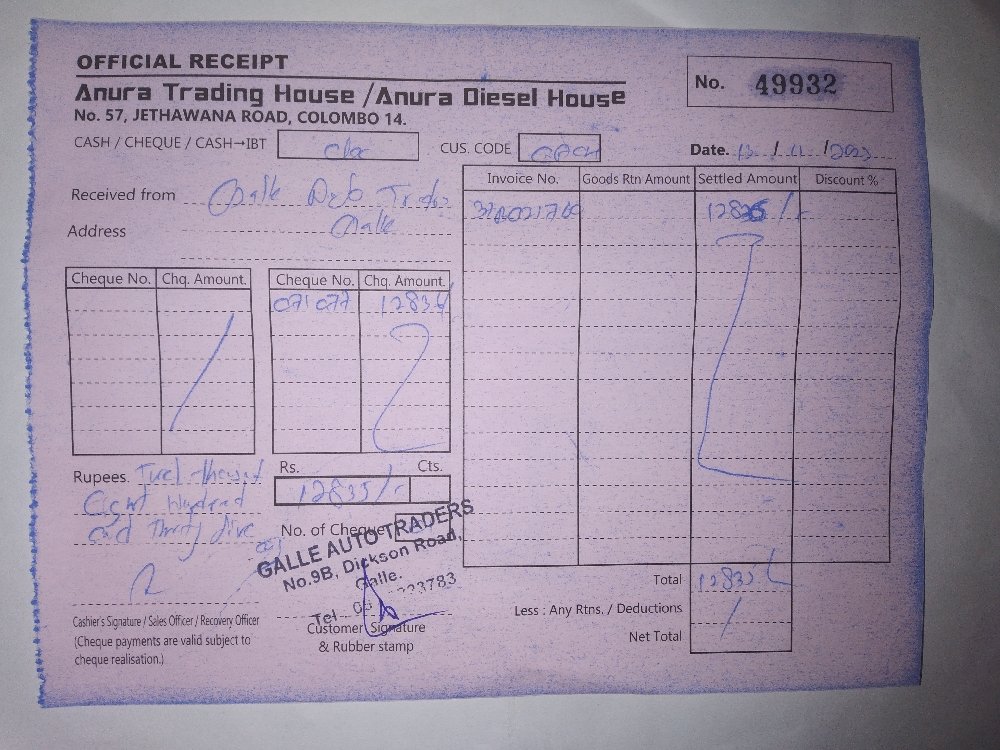 OFFICIAL RECEIPT
Anura Trading House /Anura Diesel House
No. 57, JETHAWANA ROAD, COLOMBO 14.
No. 49932
CASH / CHEQUE / CASH→IBT
CUS. CODE
Date. 13 / 11 /2023
Received from Galle
Address Galle
Invoice No. Goods Rtn Amount Settled Amount Discount %
Cheque No. Chq. Amount. Cheque No. Chq. Amount.
071077 12835/
Rupees.
Eight Hundred
and Thirty five
Rs. Cts.
12835/-
No. of Cheque
GALLE AUTO TRADERS
No.9B, Dickson Road,
Galle.
Tel 223783
Total 12835/
Less : Any Rtns. / Deductions
Net Total
Cashier's Signature / Sales Officer / Recovery Officer
(Cheque payments are valid subject to
cheque realisation.)
Customer Signature
& Rubber stamp